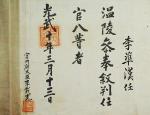 李肇漢任
溫陵參奉敍判任
官八等者
光武十年三月十三日